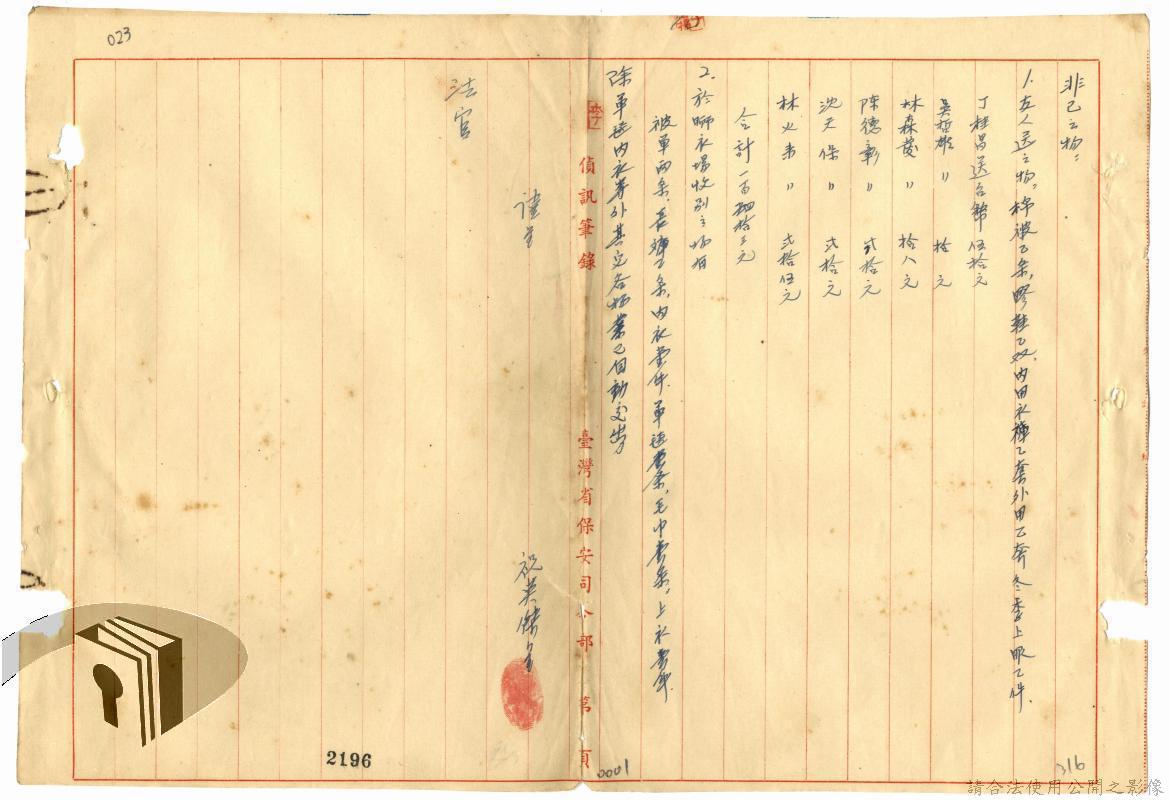 023
非己之物：
1.友人送之物：棉被乙条，膠鞋乙双，内用衣褲乙套外用乙套 冬季上服乙件
丁桂昌送台幣伍拾元
吳哲雄 〃 拾元
林森茂 〃 拾八元
陈德彰 〃 弍拾元
沈天保 〃 弍拾元
林火來 〃 弍拾伍元
合計一百肆拾三元
2.於晒衣場收別之物
被单兩条，長褲乙条，内衣壹件，軍毯壹条，毛巾壹条，上衣壹件
除軍毯内衣等外其它各物業已自動交出
偵訊筆錄
臺灣省保安司令部
第 頁
謹呈
祝英傑呈
法官
2196
0001
316
請合法使用公開之影像